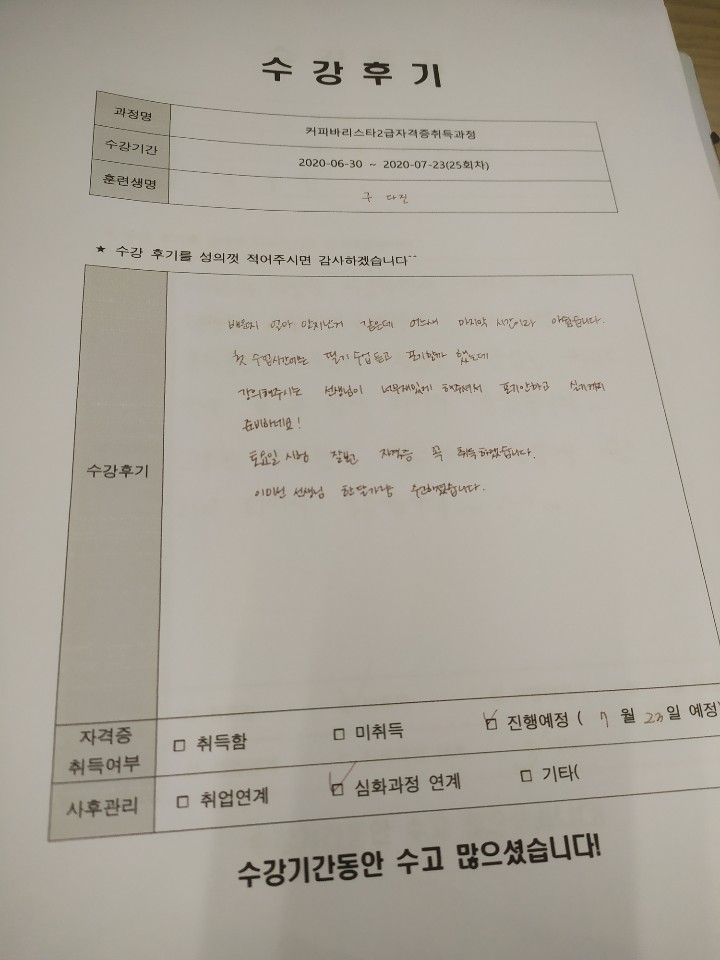 수 강 후 기
과정명
커피바리스타2급자격증취득과정
수강기간
2020-06-30 ~ 2020-07-23(25회차)
훈련생명
구 다진
★ 수강 후기를 성의껏 적어주시면 감사하겠습니다^^
수강후기
배운지 얼마 안지난거 같은데 어느새 마지막 시간이라 아쉽습니다.
첫 수업시간에는 필기 수업 듣고 포기할까 했는데
강의해주시는 선생님이 너무재밌게 해주셔서 포기안하고 실기까지
준비하네요!
토요일 시험 잘봐 자격증 꼭 취득하겠습니다.
이미선 선생님 한달가량 수고하셨습니다.
자격증
취득여부
□ 취득함
□ 미취득
□ 진행예정 ( 7 월 일 예정)
사후관리
□ 취업연계
□ 심화과정 연계
□ 기타(
수강기간동안 수고 많으셨습니다!